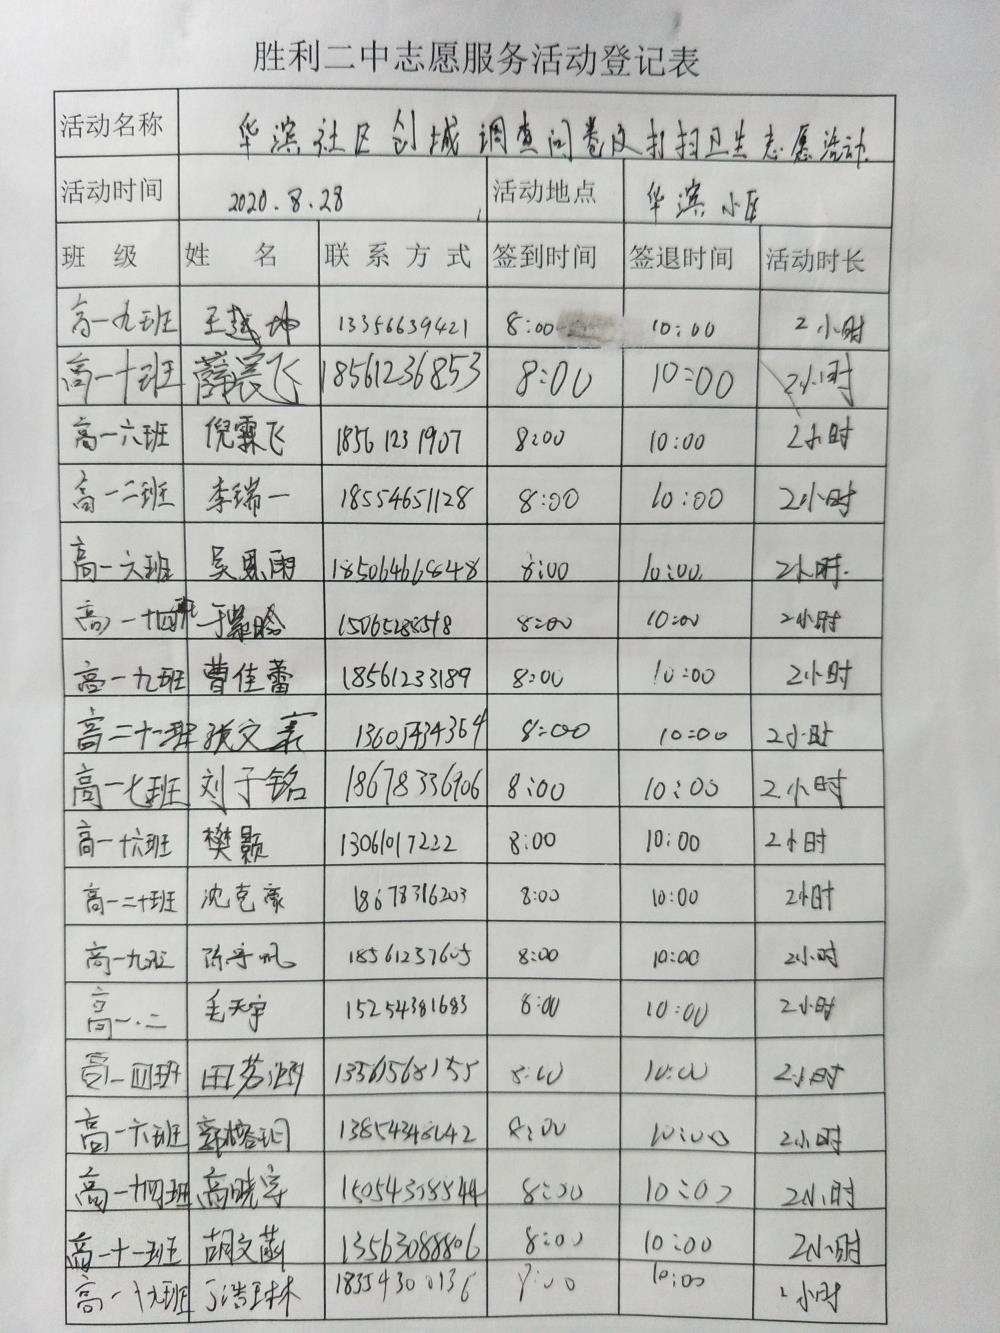 胜利二中志愿服务活动登记表
活动名称 华滨社区创城调查问卷及打扫卫生志愿活动
活动时间 2020.8.28 活动地点 华滨小区
班 级 姓 名 联系方式 签到时间 签退时间 活动时长
高一九班 王越坤 13356639421 8:00 10:00 2小时
高一十班 薛晨飞 18561236853 8:00 10:00 2小时
高一六班 倪霖飞 18561231907 8:00 10:00 2小时
高一二班 李瑞一 18554651128 8:00 10:00 2小时
高一六班 吴思雨 18506466848 8:00 10:00 2小时.
高一十四班 于 15065288518 8:00 10:00 2小时
高一九班 曹佳蕾 18561233189 8:00 10:00 2小时
高二十一班 张文豪 13605434364 8:00 10:00 2小时
高一七班 刘子铭 18678336906 8:00 10:00 2小时
高一十六班 樊颢 13061017222 8:00 10:00 2小时
高一二十班 沈克豪 18678316203 8:00 10:00 2小时
高一九班 陈帆 18561237605 8:00 10:00 2小时
高一.二 毛天宇 15254381683 8:00 10:00 2小时
高一四班 田 13561568155 8:00 10:00 2小时
高一六班 13854348042 8:00 10:00 2小时
高一十四班 高晓宇 15054308844 8:00 10:00 2小时
高一十一班 胡文菡 13563088806 8:00 10:00 2小时
高一十九班 丁浩 18354300136 8:00 10:00 2小时